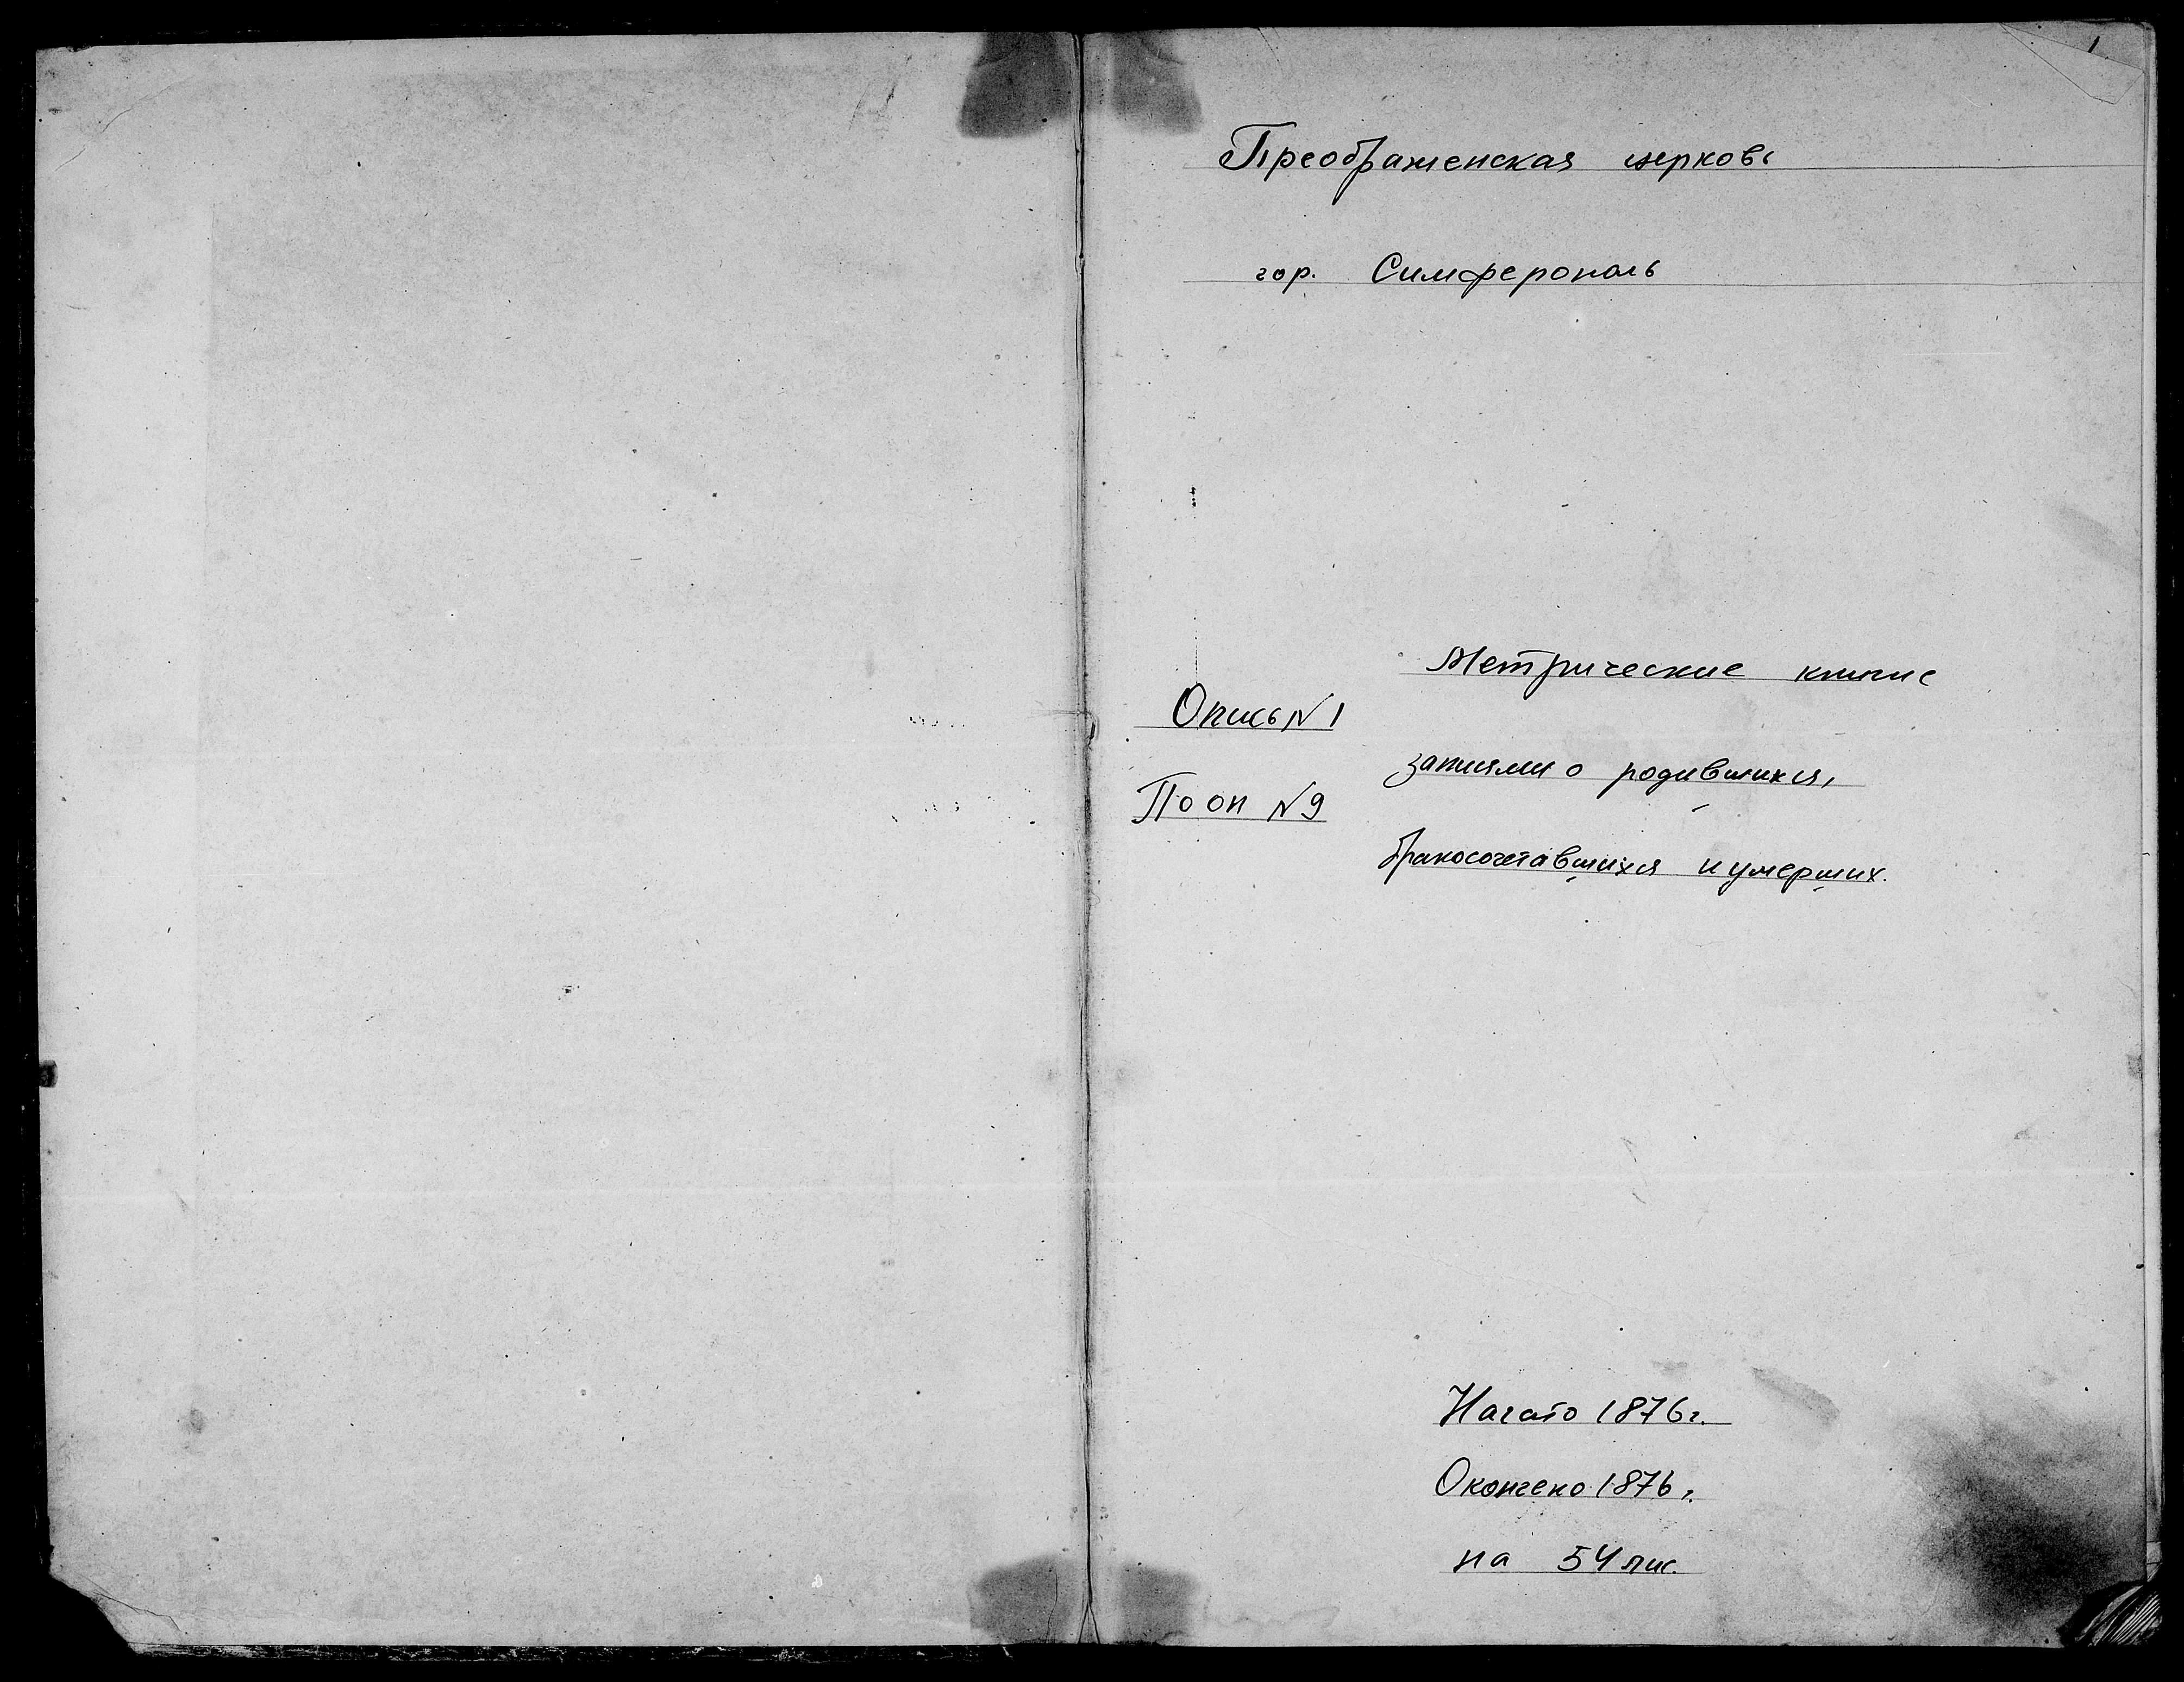 1
Преображенская церковь
гор. Симферополь
Метрические книги с
Опись № 1
записями о родившихся,
По оп № 9
бракосочетавшихся и умерших.
Начато 1876 г.
Окончено 1876 г.
на 54 лис.